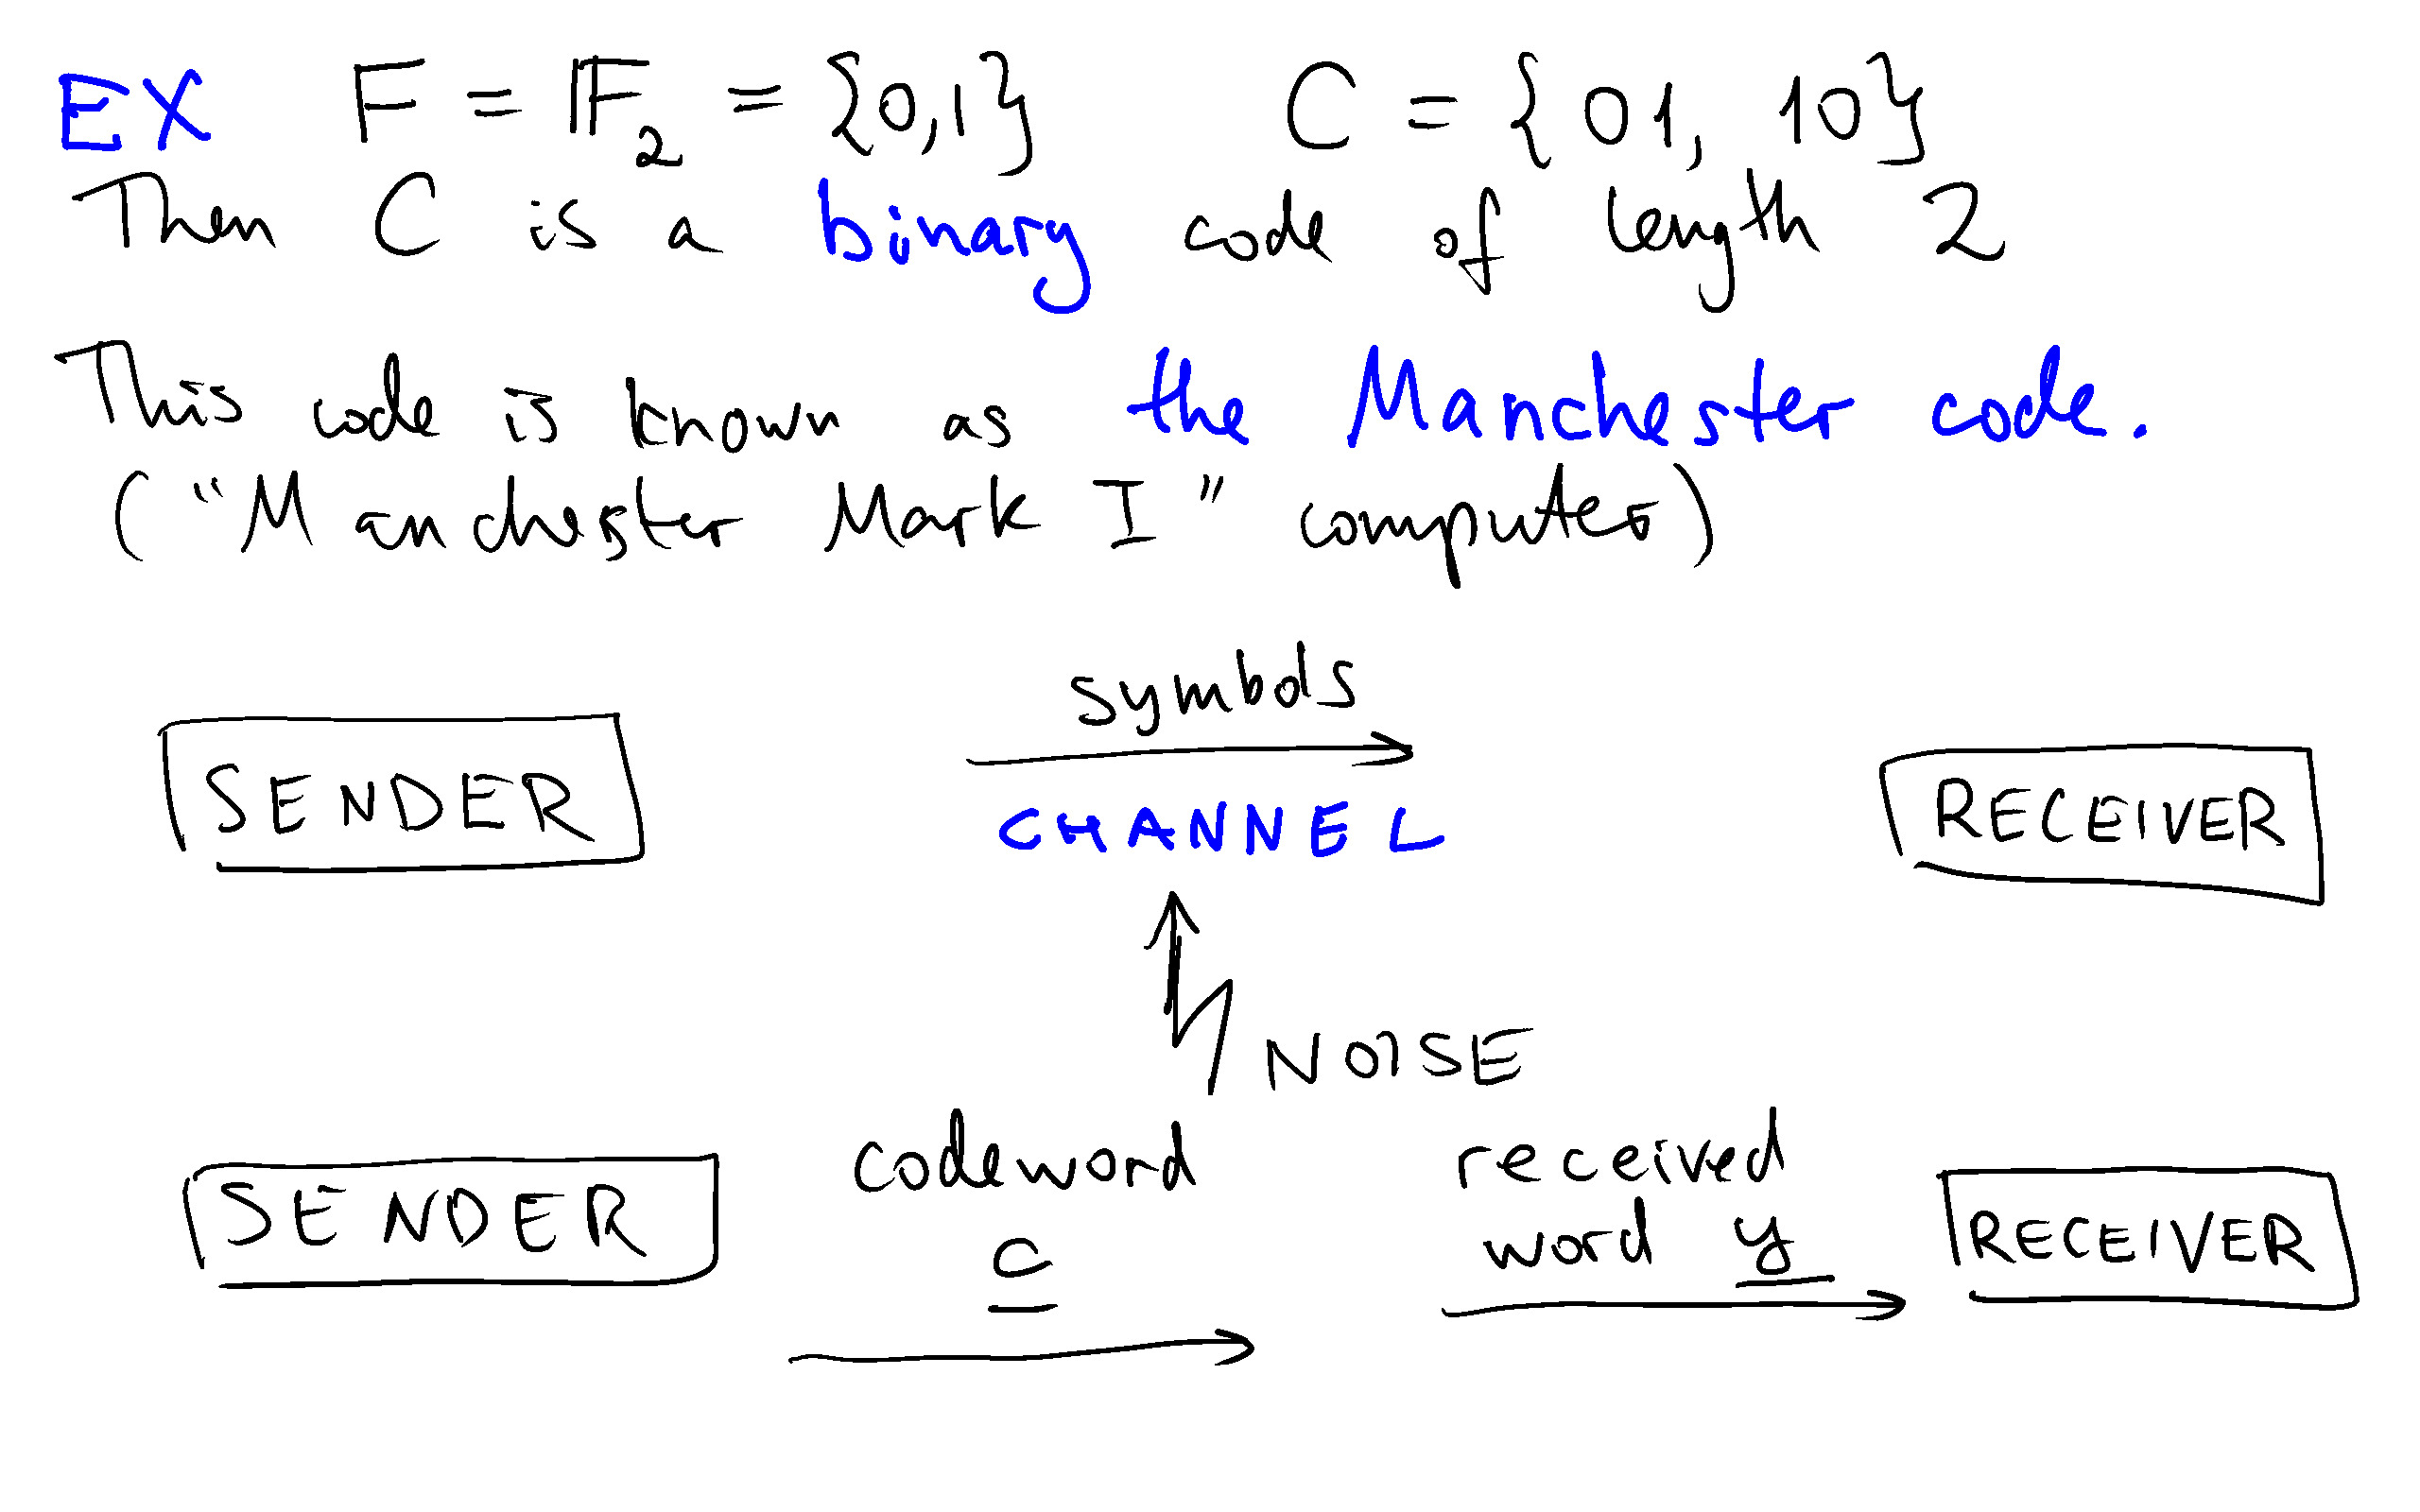 EX F = 𝔽₂ = {0,1} C = {01, 10}
Then C is a binary code of length 2
This code is known as the Manchester code.
("Manchester Mark I" computer)
symbols
SENDER CHANNEL RECEIVER
NOISE
codeword received
SENDER c word y RECEIVER